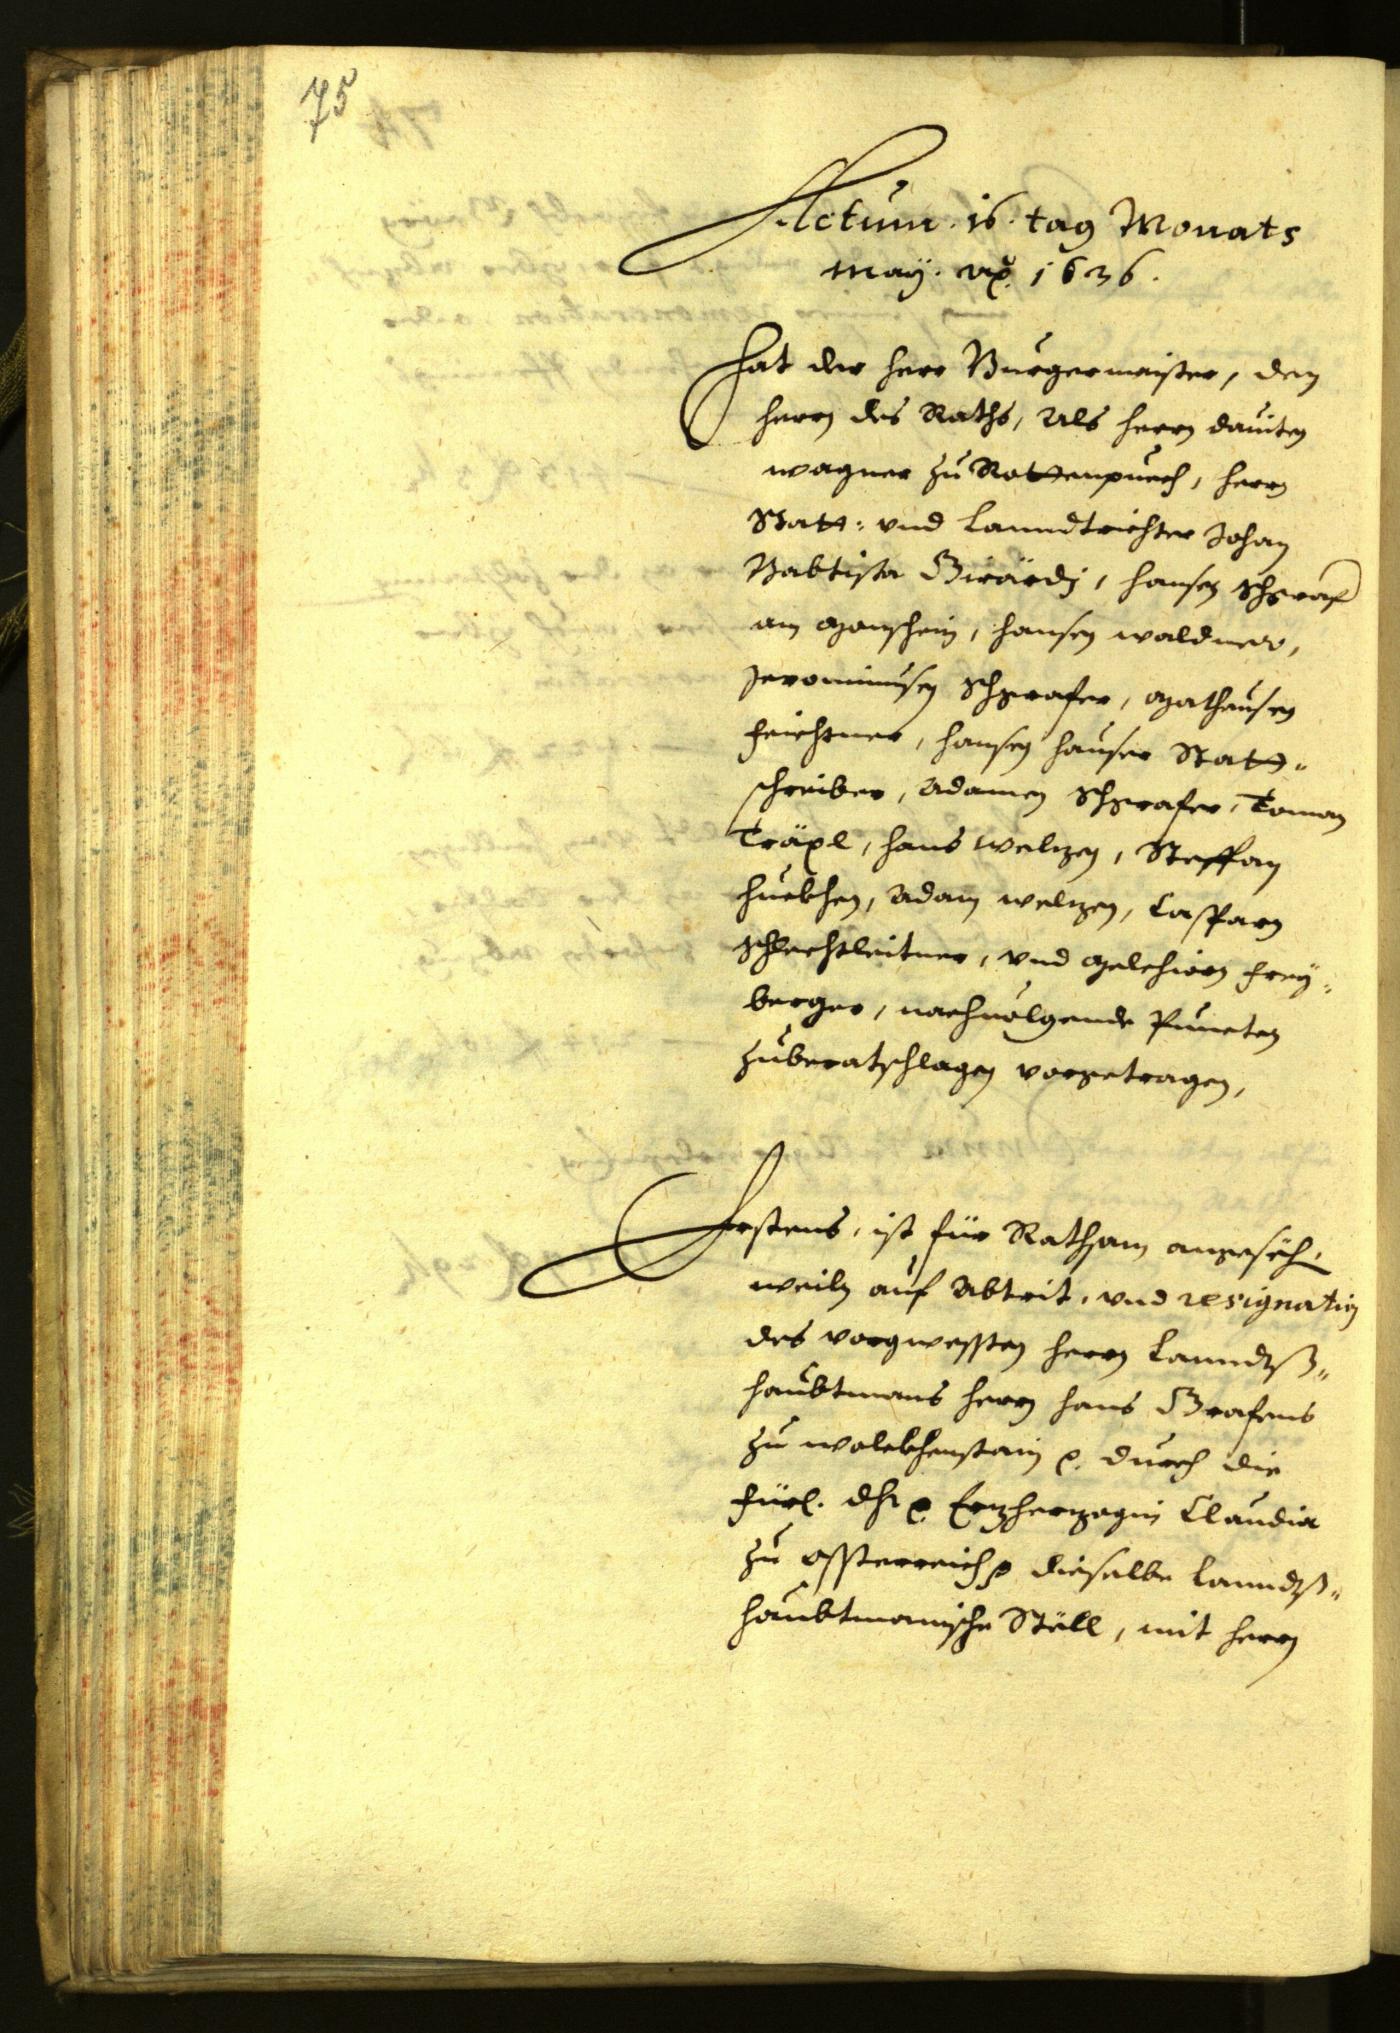 75
Actum. 16. tag Monats
May. Ao. 1636.
Hat der herr Burgermaister, den
herrn des Raths, Als herrn dauiten
wagner zu Rottenpuech, herrn
Statt: vnd Lanndtrichter Johan
Babtista Girärdj, hansen Schgraf
am Manschein, hansen waldner,
Jeronimusen Schgrafer, Mathausen
Feichtner, hansen hauser Statt-
schreiber, Adamen Schgrafer, Toman
Träxl, hans Welzen, Steffan
hueblhen, Adam welzen, Casparn
Schlechtleitner, vnd Melchiorn Frey-
berger, nachuolgende Puncten
zuberatschlagen vorgetragen,
Erstens, ist für Rathsam angesech.
weiln auf Abtrit, vnd resignation
des vorgwessten herrn Lanndtß-
haubtmans herrn hans Grafens
zu wolckhenstain &. durch die
Fürl. dht &. Erzherzogin Claudia
zu Össterreich & dieselbe Lanndtß-
haubtmanische Stöll, mit herrn